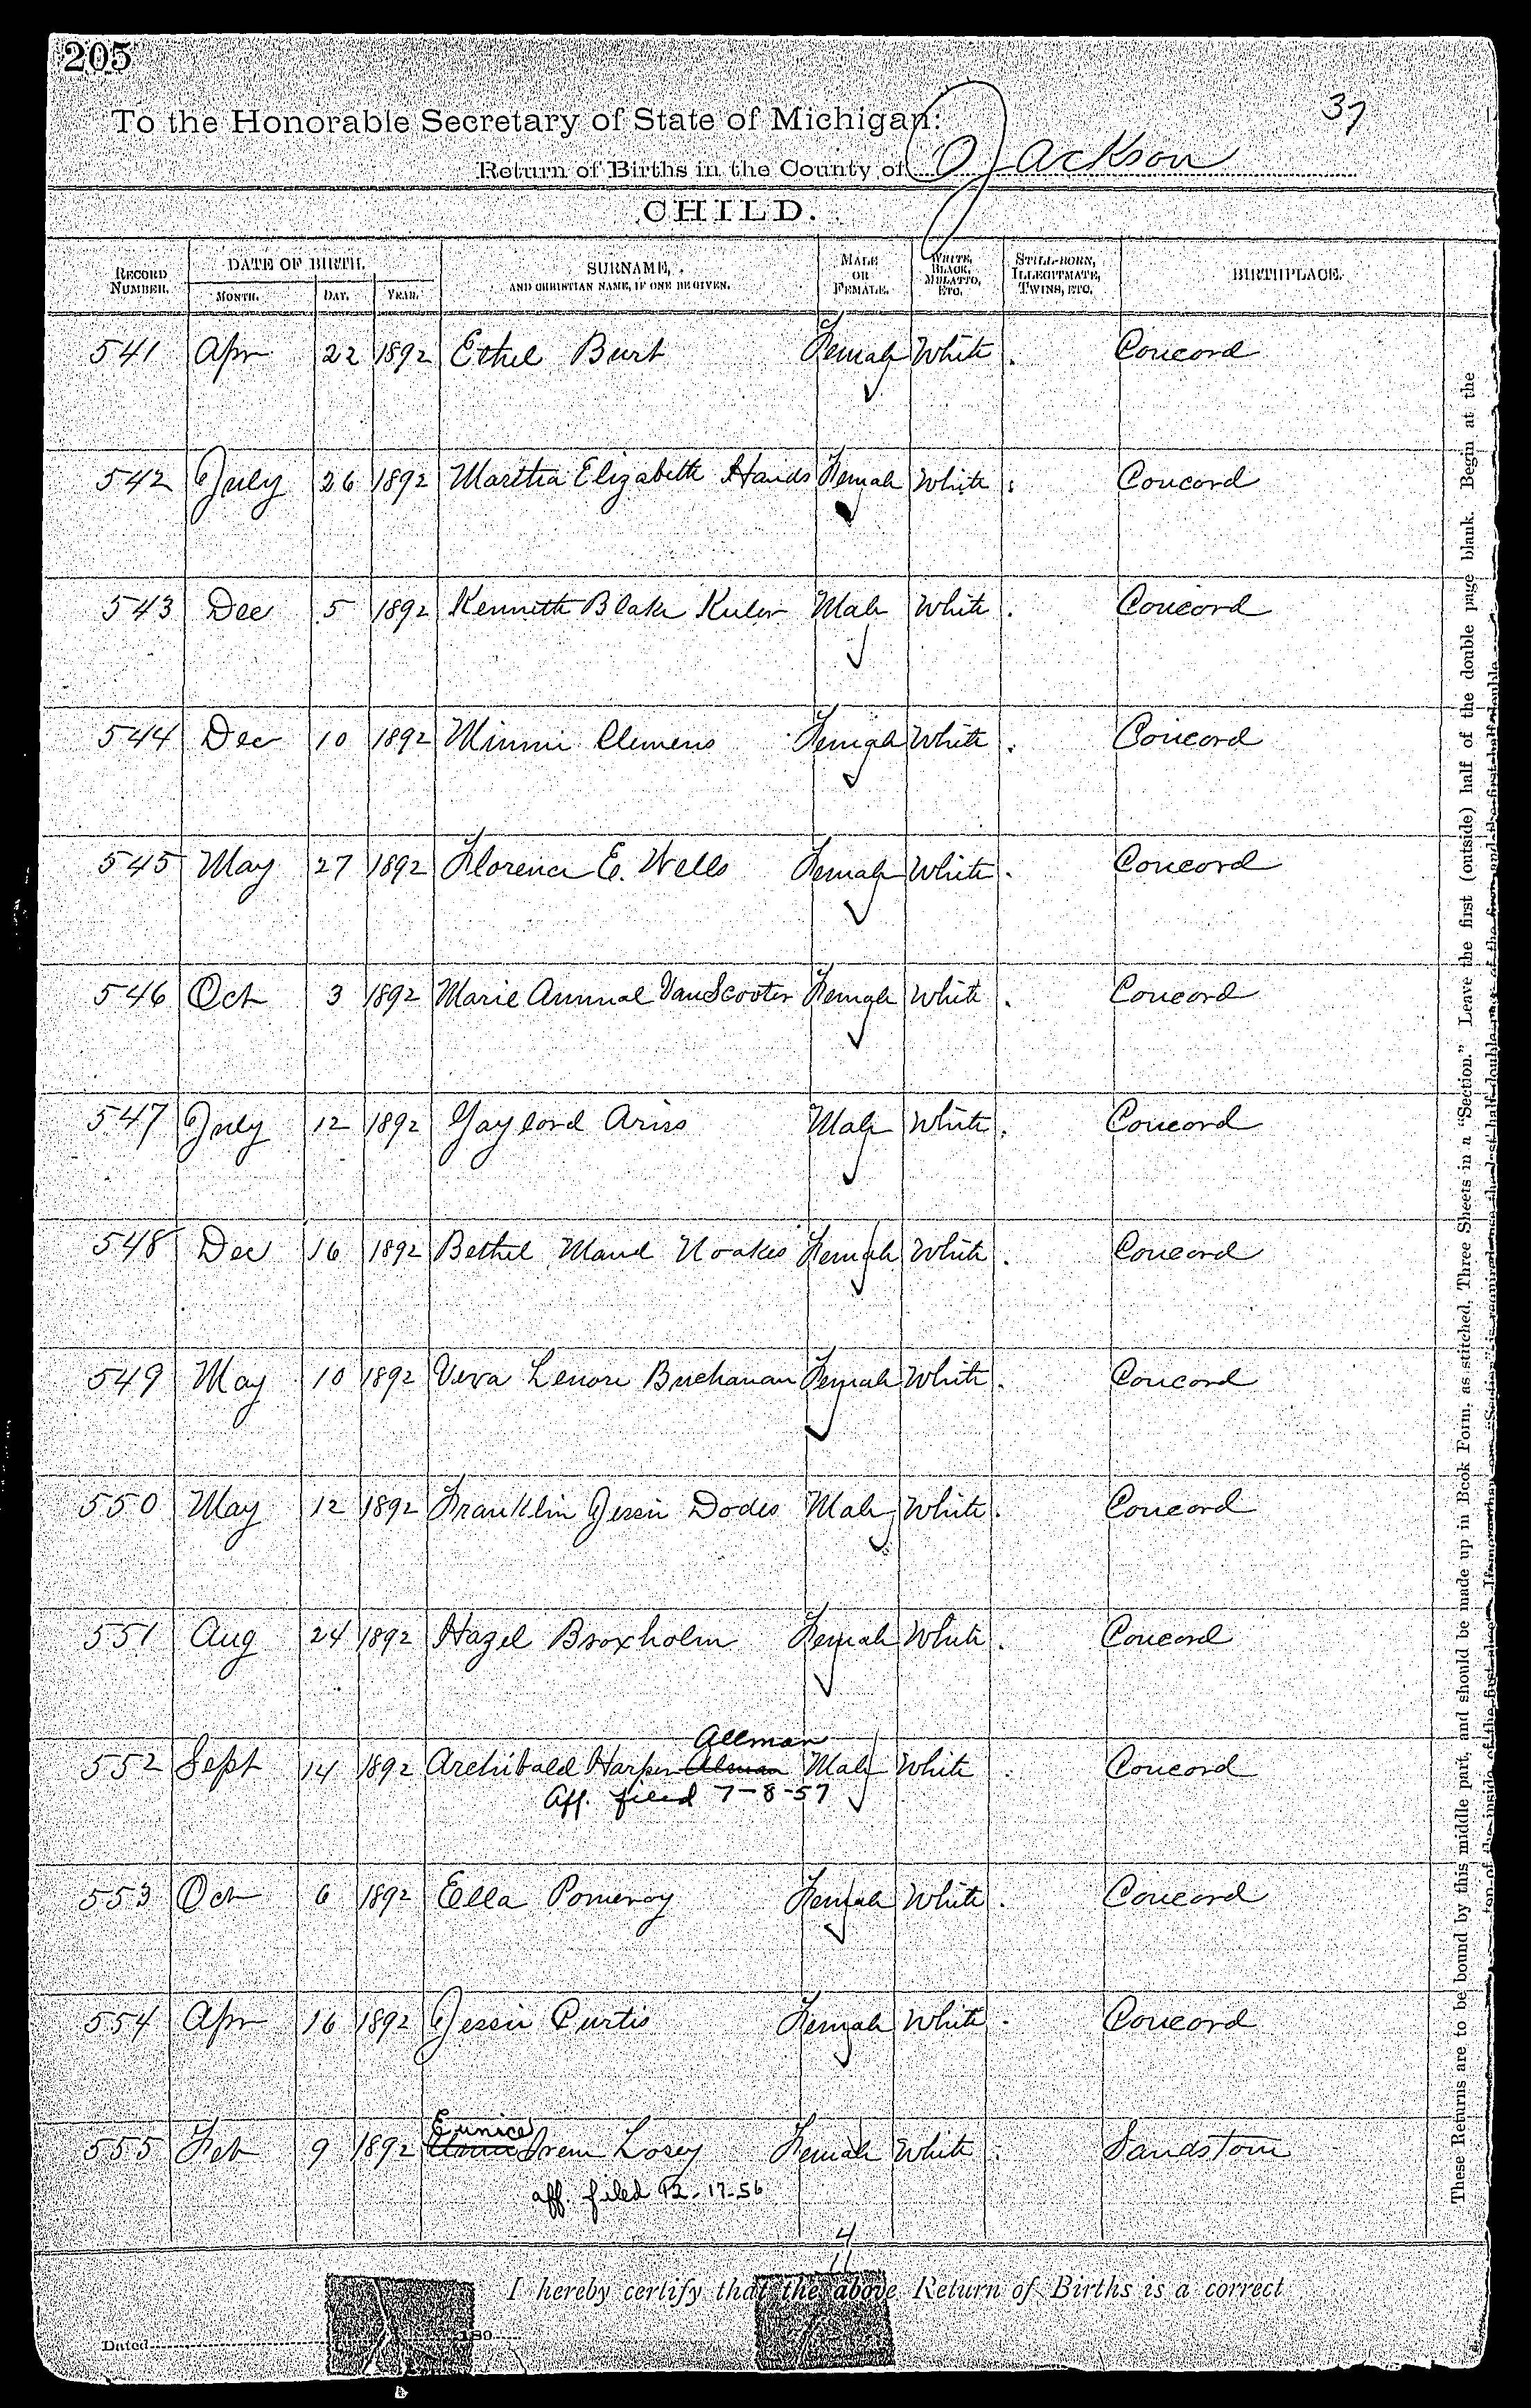 205
37
To the Honorable Secretary of State of Michigan:
Return of Births in the County of Jackson
CHILD.
RECORD NUMBER. DATE OF BIRTH. MONTH. DAY. YEAR. SURNAME, AND CHRISTIAN NAME, IF ONE BE GIVEN. MALE OR FEMALE. WHITE, BLACK, MULATTO, ETC. STILL-BORN, ILLEGITMATE, TWINS, ETC. BIRTHPLACE.
541 Apr 22 1892 Ethel Burt Female White Concord
542 July 26 1892 Martha Elizabeth Hands Female White Concord
543 Dec 5 1892 Kenneth Blake Male White Concord
544 Dec 10 1892 Minnie Clemens Female White Concord
545 May 27 1892 Florence E. Wells Female White Concord
546 Oct 3 1892 Marie VanScooter Female White Concord
547 July 12 1892 Gaylord Ariss Male White Concord
548 Dec 16 1892 Bethel Maud Noakes Female White Concord
549 May 10 1892 Veva Lenore Buchanan Female White Concord
550 May 12 1892 Franklin Jessie Dodes Male White Concord
551 Aug 24 1892 Hazel Broxholm Female White Concord
Allman
552 Sept 14 1892 Archibald Harper Alman Male White Concord
Aff. filed 7-8-57
553 Oct 6 1892 Ella Pomeroy Female White Concord
554 Apr 16 1892 Jessie Curtis Female White Concord
Eunice
555 Feb 9 1892 Irene Losey Female White Sandstone
aff. filed 12-17-56
4
11
I hereby certify that the above Return of Births is a correct
Dated 189
These Returns are to be bound by this middle part, and should be made up in Book Form, as stitched, Three Sheets in a "Section." Leave the first (outside) half of the double page blank. Begin at the